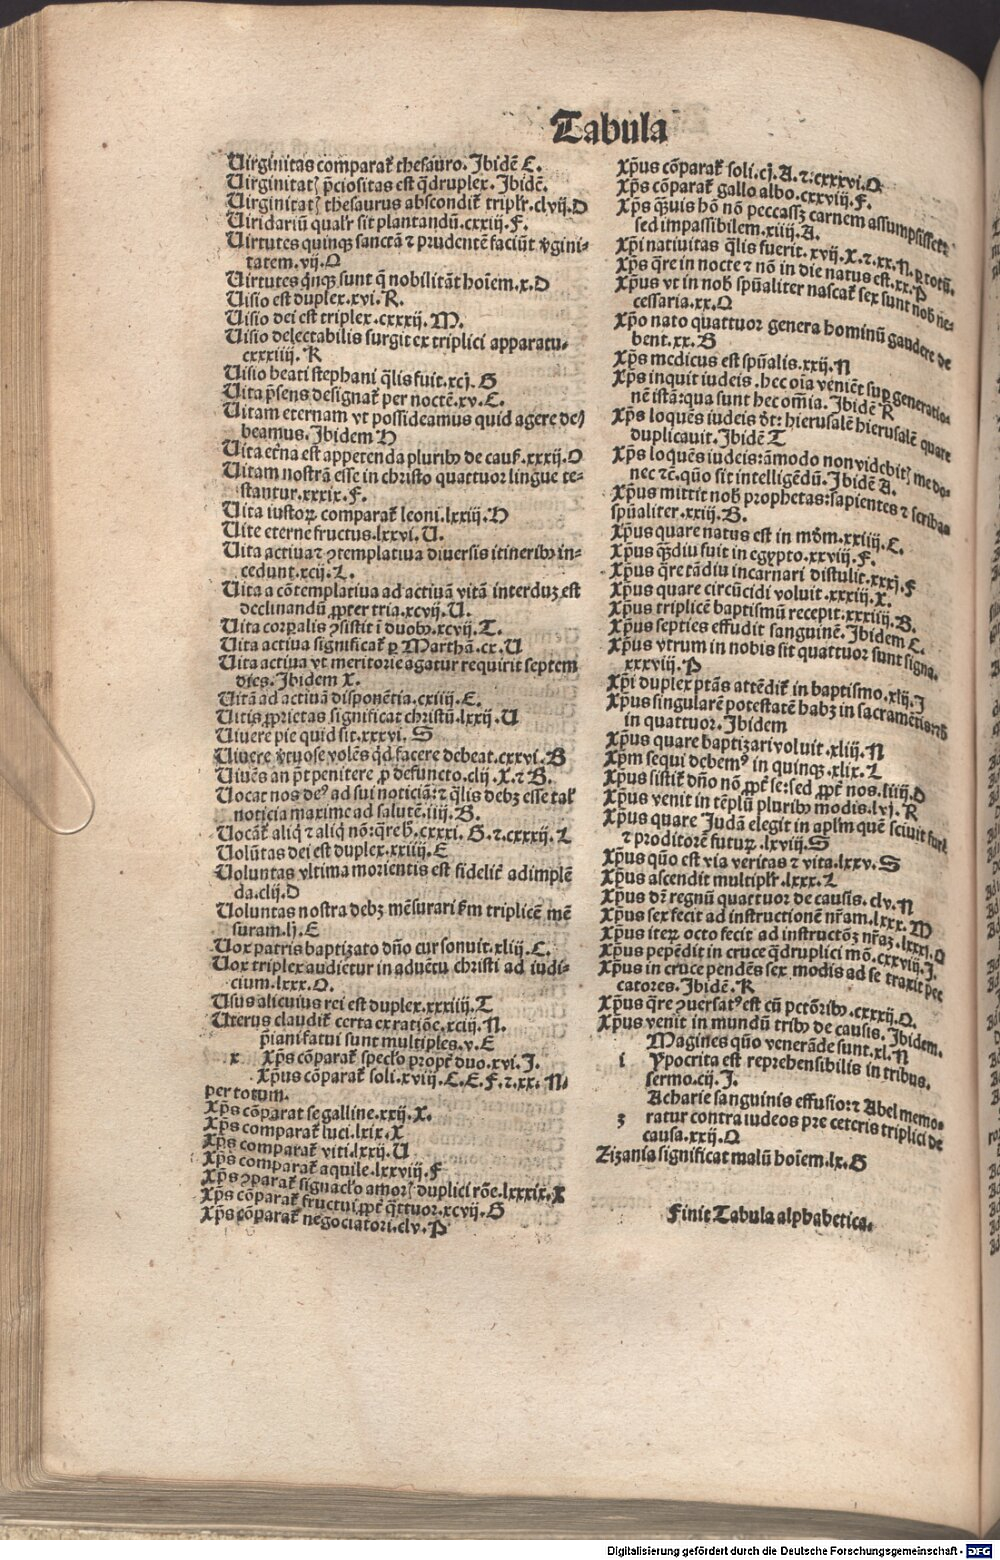 Tabula
Uirginitas comparat᷑ thesauro. Ibidē E.
Uirginitatꝭ p̄ciositas est q̄druplex. Ibidē.
Uirginitatꝭ thesaurus abscondit᷑ tripl᷑r. clvij. D
Uiridariū qual᷑r sit plantandū. cxxiij. F.
Uirtutes quinqꝫ sanctā ⁊ prudentē faciūt v̄gini⸗
tatem. vij. O
Uirtutes q̄nqꝫ sunt q̄ nobilitāt hoīem. x. D
Uisio est duplex. xvi. R.
Uisio dei est triplex. cxxxij. M.
Uisio delectabilis surgit ex triplici apparatu.
cxxxiiij. K
Uisio beati stephani q̄lis fuit. xcj. G
Uita p̄sens designat᷑ per noctē. xv. C.
Uitam eternam vt possideamus quid agere de⸗
beamus. Ibidem H
Uita et̄na est appetenda pluribꝰ de cauſ. xxxij. O
Uitam nostrā esse in christo quattuor lingue te⸗
stantur. xxxix. F.
Uita iustoꝝ comparat᷑ leoni. lxxiij. H
Uite eterne fructus. lxxvi. U.
Uita actiua ⁊ ꝯtemplatiua diuersis itineribꝰ in⸗
cedunt. xcij. L.
Uita a cōtemplatiua ad actiuā vitā interduꝫ est
declinandū ꝓpter tria. xcvij. U.
Uita corꝑalis ꝯsistit ī duobꝰ. xcvij. T.
Uita actiua significat᷑ ꝑ Marthā. cx. U
Uita actiua vt meritorie agatur requirit septem
dies. Ibidem X.
Uitā ad actiuā disponētia. cxiiij. E.
Uitis ꝓprietas significat christū. lxxij. U
Uiuere pie quid sit. xxxvi. S
Uiuere v̄tuose volēs qd̄ facere debeat. cxxvi. B
Uiuēs an p̄t penitere ꝓ defuncto. clij. X. ⁊ B.
Uocat nos deꝰ ad sui noticiā: ⁊ q̄lis debꝫ esse tal᷑
noticia maxime ad salutē. iiij. B.
Uocāt᷑ aliq̄ ⁊ aliq̄ nō: q̄re h̄. cxxxi. G. ⁊. cxxxij. L
Uolūtas dei est duplex. xxiiij. E
Uoluntas vltima morientis est fidelit᷑ adimplē
da. clij. D
Uoluntas nostra debꝫ mēsurari ẜm triplicē mē
suram. lj. E
Uox patris baptizato dn̄o cur sonuit. xliij. C.
Uox triplex audietur in aduētu christi ad iudi⸗
cium. lxxx. O.
Usus alicuius rei est duplex. xxxiiij. T
Uterus claudit᷑ certa ex ratiōe. xciij. N.
p̄iani fatui sunt multiples. v. E
x Xp̄s cōparat᷑ specl᷑o propt᷑ duo. xvi. I.
Xp̄us cōparat᷑ soli. xviij. C. E. F. ⁊. xx. N.
per totum.
Xp̄s cōparat se galline. xxij. X.
Xp̄s comparat᷑ luci. lxix. X
Xp̄s comparat᷑ viti. lxxij. U
Xp̄s comparat᷑ aquile. lxxviij. F
Xp̄s ꝯparat᷑ signacl᷑o amorꝭ duplici rōe. lxxxix. X
Xp̄s cōparat᷑ fructui ꝓpt᷑ q̄ttuor. xcvij. G
Xp̄s cōparat᷑ negociatori. clv. P
Xp̄us cōparat᷑ soli. cj. A. ⁊. cxxxvi. O
Xp̄s cōparat᷑ gallo albo. cxxviij. F.
Xp̄s qꝫuis hō nō peccasſꝫ carnem assumpsisset⸗
sed impassibilem. xiiij. A.
Xp̄i natiuitas q̄lis fuerit. xvij. X. ⁊. xx. N. ꝑ totū.
Xp̄s q̄re in nocte ⁊ nō in die natus est. xx. P
Xp̄us vt in nob̄ spūaliter nascat᷑ sex sunt nob̄ ne⸗
cessaria. xx. O
Xp̄o nato quattuor genera hominū gaudere de
bent. xx. B
Xp̄s medicus est spūalis. xxij. N
Xp̄s inquit iudeis. hec oīa veniēt suꝑ generatio⸗
nē istā: qua sunt hec om̄ia. Ibidē R
Xp̄s loquēs iudeis d̄t: hierusalē hierusalē quare
duplicauit. Ibidē T
Xp̄s loquēs iudeis: āmodo non videbitꝭ me do⸗
nec ⁊ē. quō sit intelligēdū. Ibidē A.
Xp̄us mittit nob̄ prophetas: sapientes ⁊ scribas
spūaliter. xxiij. B.
Xp̄us quare natus est in mōm. xxiiij. C.
Xp̄us qꝫdiu fuit in egypto. xxviij. F.
Xp̄us q̄re tādiu incarnari distulit. xxxj. F
Xp̄us quare circūcidi voluit. xxxiij. X.
Xp̄us triplicē baptismū recepit. xxxiiij. B.
Xp̄us septies effudit sanguinē. Ibidem C.
Xp̄us vtrum in nobis sit quattuor sunt signa.
xxxviij. P
Xp̄i duplex ptās attēdit᷑ in baptismo. xlij. I
Xp̄us singularē potestatē habꝫ in sacramētis: ⁊ h̄
in quattuor. Ibidem
Xp̄us quare baptizari voluit. xliij. N
Xp̄m sequi debemꝰ in quinqꝫ. xlix. L
Xp̄us sistit᷑ dn̄o nō ꝓpt᷑ se: sed ꝓpt᷑ nos. liiij. D
Xp̄us venit in tēplū pluribꝰ modis. lvj. R
Xp̄us quare Judā elegit in apl᷑m quē sciuit furē
⁊ proditorē futuꝝ. lxviij. S
Xp̄us quō est via veritas ⁊ vita. lxxv. S
Xp̄us ascendit multipl᷑r. lxxx. L
Xp̄us dr̄ regnū quattuor de causis. clv. N
Xp̄us sex fecit ad instructionē nr̄am. lxxx. M
Xp̄us iteꝝ octo fecit ad instructōꝫ nr̄aꝫ. lxxxj. O
Xp̄us pepēdit in cruce q̄druplici mō. cxxviij. I.
Xp̄us in cruce pendēs sex modis ad se traxit pec
catores. Ibidē. K
Xp̄us q̄re ꝯuersatꝰ est cū pctōribꝰ. cxxxij. O.
Xp̄us venit in mundū tribꝰ de causis. Ibidem.
Magines quō venerāde sunt. xl. N
i Ypocrita est reprehensibilis in tribus.
sermo. cij. I.
Acharie sanguinis effusio: ⁊ Abel memo⸗
z ratur contra iudeos pre ceteris triplici de
causa. xxij. O
Zizania significat malū hoīem. lx. G
Finit Tabula alphabetica.
Digitalisierung gefördert durch die Deutsche Forschungsgemeinschaft - DFG